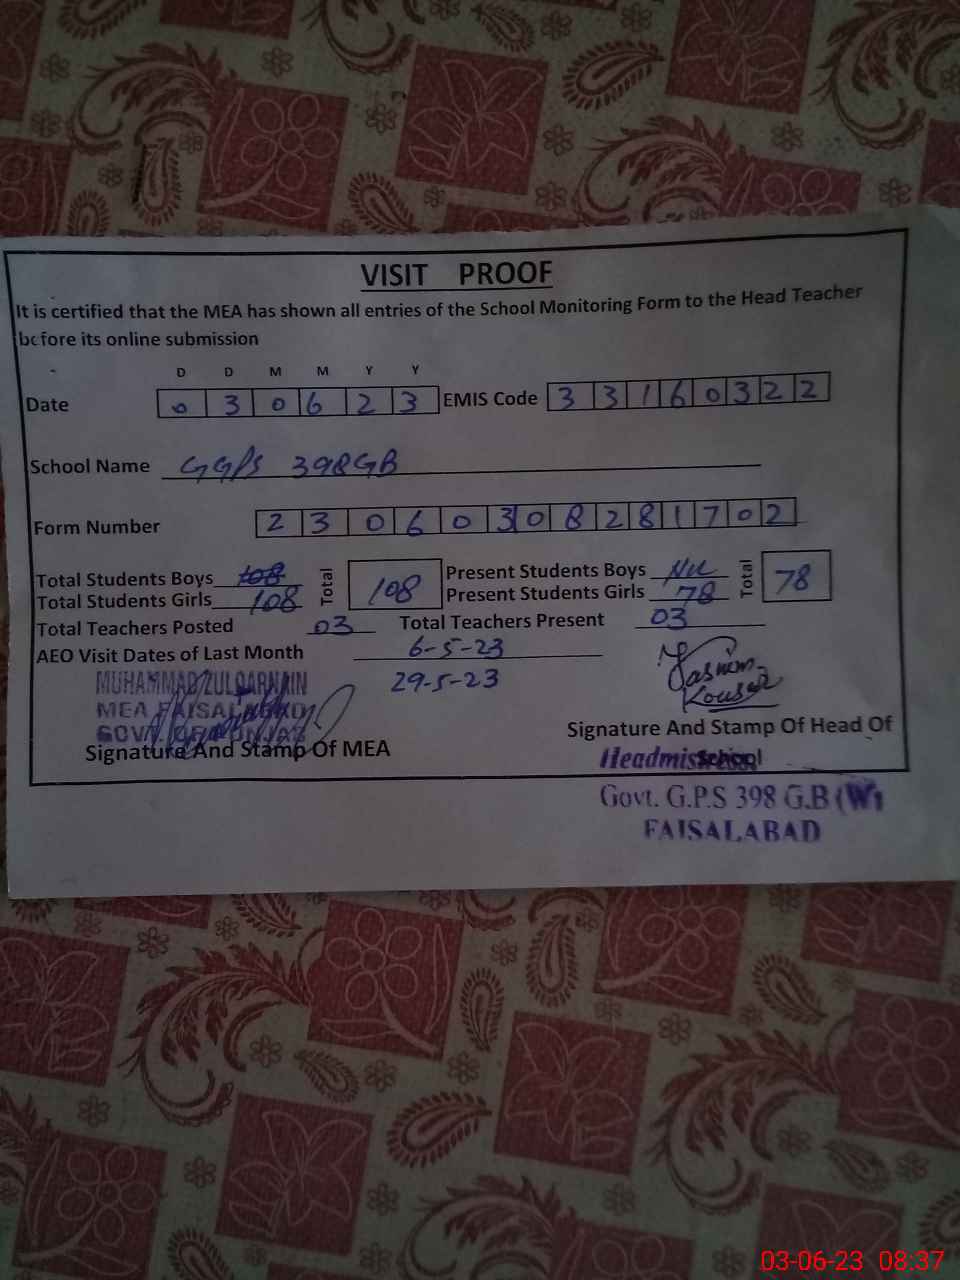 VISIT PROOF
It is certified that the MEA has shown all entries of the School Monitoring Form to the Head Teacher
before its online submission
D D M M Y Y
Date 0 3 0 6 2 3 EMIS Code 3 3 1 6 0 3 2 2
School Name GGPS 398GB
Form Number 2 3 0 6 0 3 0 8 2 8 1 7 0 2
Total Students Boys 108 Total 108 Present Students Boys Nil Total 78
Total Students Girls 108 Present Students Girls 78
Total Teachers Posted 03 Total Teachers Present 03
AEO Visit Dates of Last Month 6-5-23
29-5-23
MUHAMMAD ZULQARNAIN
MEA FAISALABAD
GOVT. OF PUNJAB
Yasmin
Kousar
Signature And Stamp Of MEA
Signature And Stamp Of Head Of
School
Headmistress
Govt. G.P.S 398 G.B (W)
FAISALABAD
03-06-23 08:37